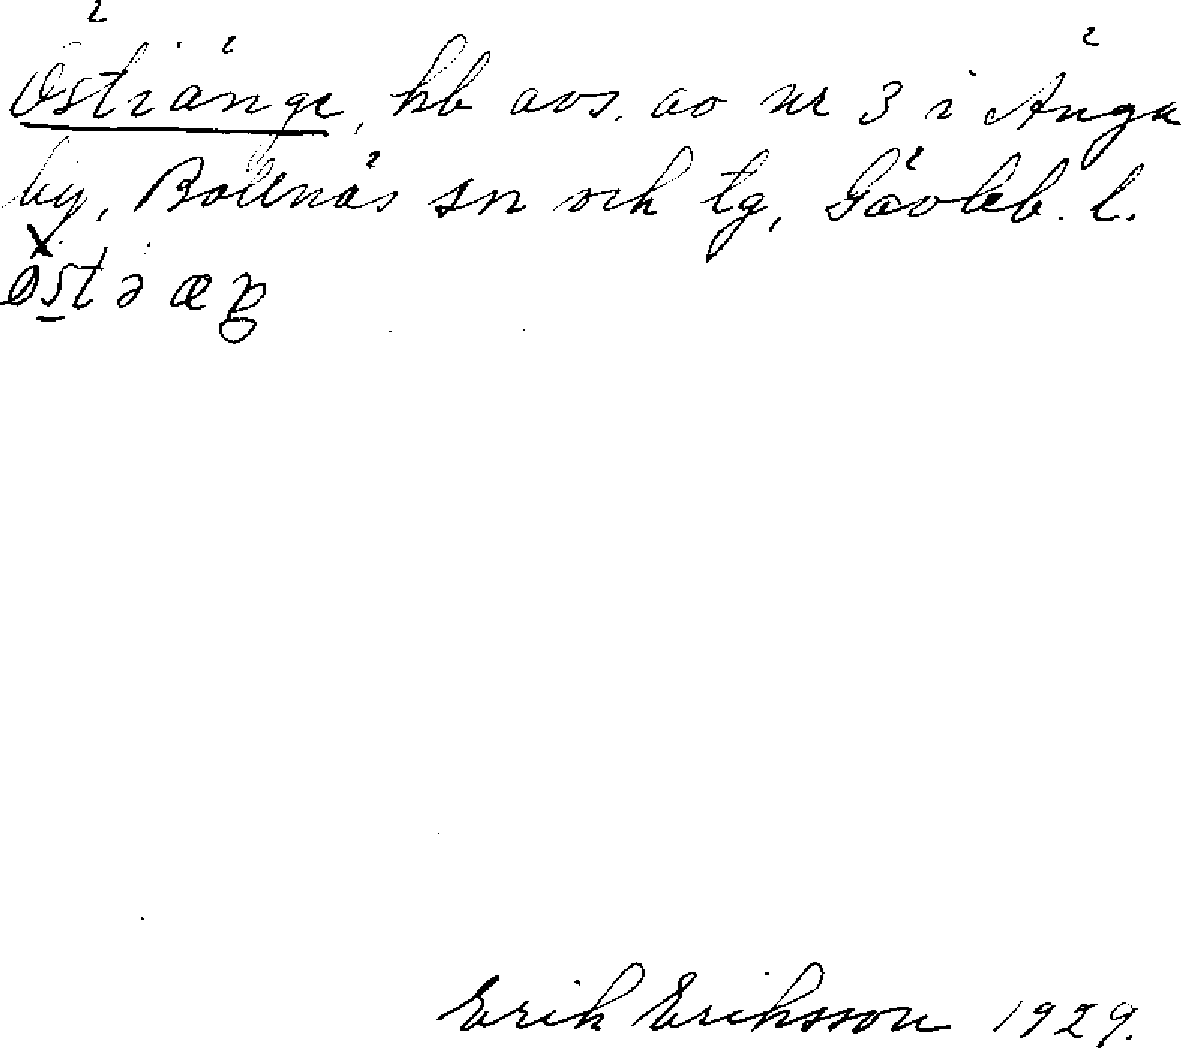 Östiänge, hb avs. av nr 3 i Änga
by, Bollnäs sn och tg, Gävleb. l.
Erik Eriksson 1929.